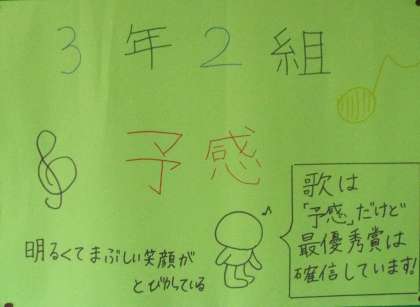 3年2組
予感
明るくてまぶしい笑顔が
とびかっている
歌は
「予感」だけど
最優秀賞は
確信しています!